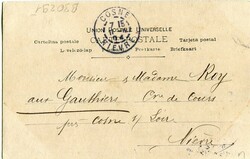 COSNE
NIEVRE
UNION POSTALE UNIVERSELLE
CARTE POSTALE
Cartolina postal Tarjeta postal
Postkarte Briefkaart
Monsieur & Madame Roy
aux Gauthiers Cne de Cours
par Cosne s/ Loire
Nièvre